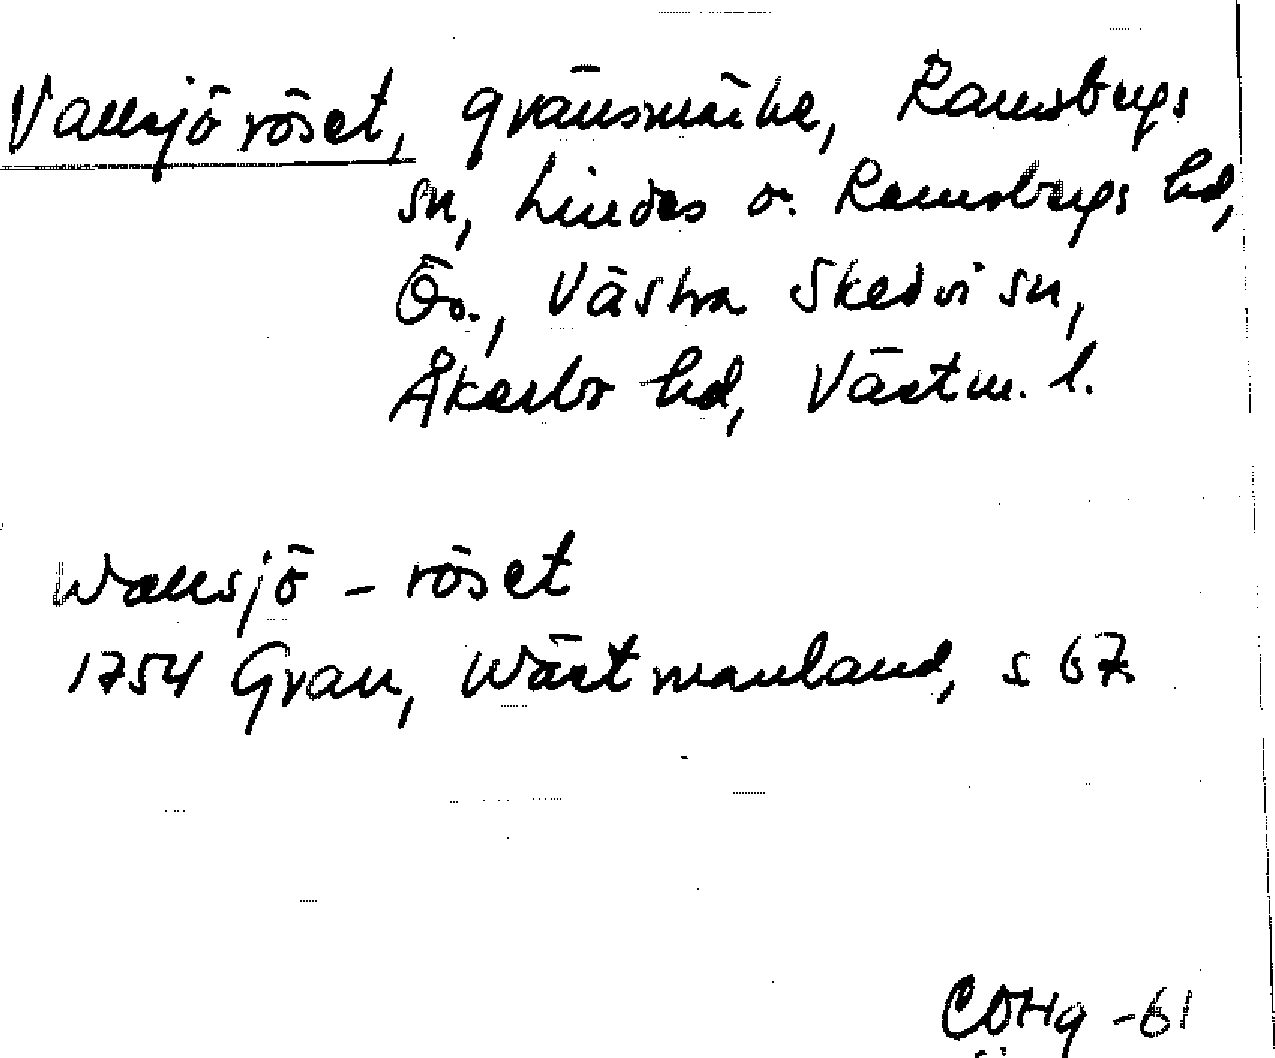 Vallsjöröset, gränsmärke, Ramsbergs
sn, Lindes o. Ramsbergs hd,
Ör., Västra Skedvi sn,
Åkerbo hd, Västm. l.
Wallsjö - röset
1754 Grau, Wästmanland, s 67.
COHg -61